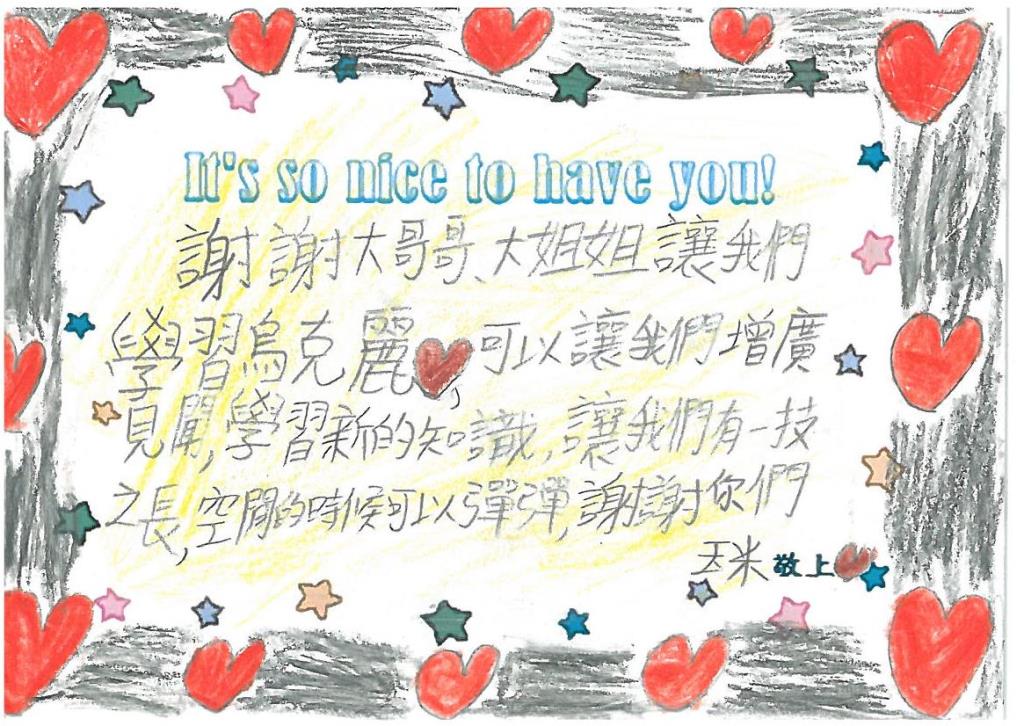 It's so nice to have you!
謝謝大哥哥、大姐姐讓我們
學習烏克麗，可以讓我們增廣
見聞，學習新的知識，讓我們有一技
之長，空閒的時候可以彈彈，謝謝你們
玉米 敬上